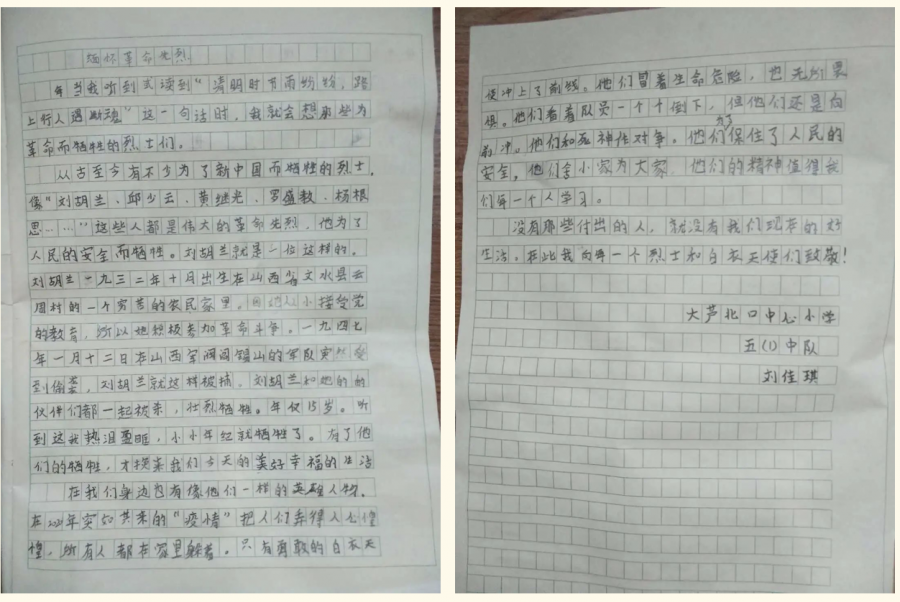 缅怀革命先烈
每当我听到或读到“清明时节雨纷纷，路
上行人遇断魂”这一句话时，我就会想那些为
革命而牺牲的烈士们。
从古至今有不少为了新中国而牺牲的烈士，
像“刘胡兰、邱少云、黄继光、罗盛教、杨根
思……”这些人都是伟大的革命先烈，他为了
人民的安全而牺牲。刘胡兰就是一位这样的。
刘胡兰一九三二年十月出生在山西省文水县云
周村的一个穷苦的农民家里。因她从小接受党
的教育，所以她积极参加革命斗争。一九四七
年一月十二日在山西军阀阎锡山的军队突然受
到偷袭，刘胡兰就这样被捕。刘胡兰和她的的
伙伴们都一起被杀，壮烈牺牲。年仅15岁。听
到这我热泪盈眶，小小年纪就牺牲了。有了他
们的牺牲，才换来我们今天的美好幸福的生活
在我们身边也有像他们一样的英雄人物，
在年突如其来的“疫情”把人们弄得人心惶
惶，所有人都在家里躲着。只有勇敢的白衣天
使冲上了前线。他们冒着生命危险，也无所畏
惧。他们看着队员一个个倒下，但他们还是向
前冲。他们和死神作对争。他们为了保住了人民的
安全，他们舍小家为大家，他们的精神值得我
们每一个人学习。
没有那些付出的人，就没有我们现在的好
生活，在此我向每一个烈士和白衣天使们致敬！
大芦北口中心小学
五(1)中队
刘佳琪